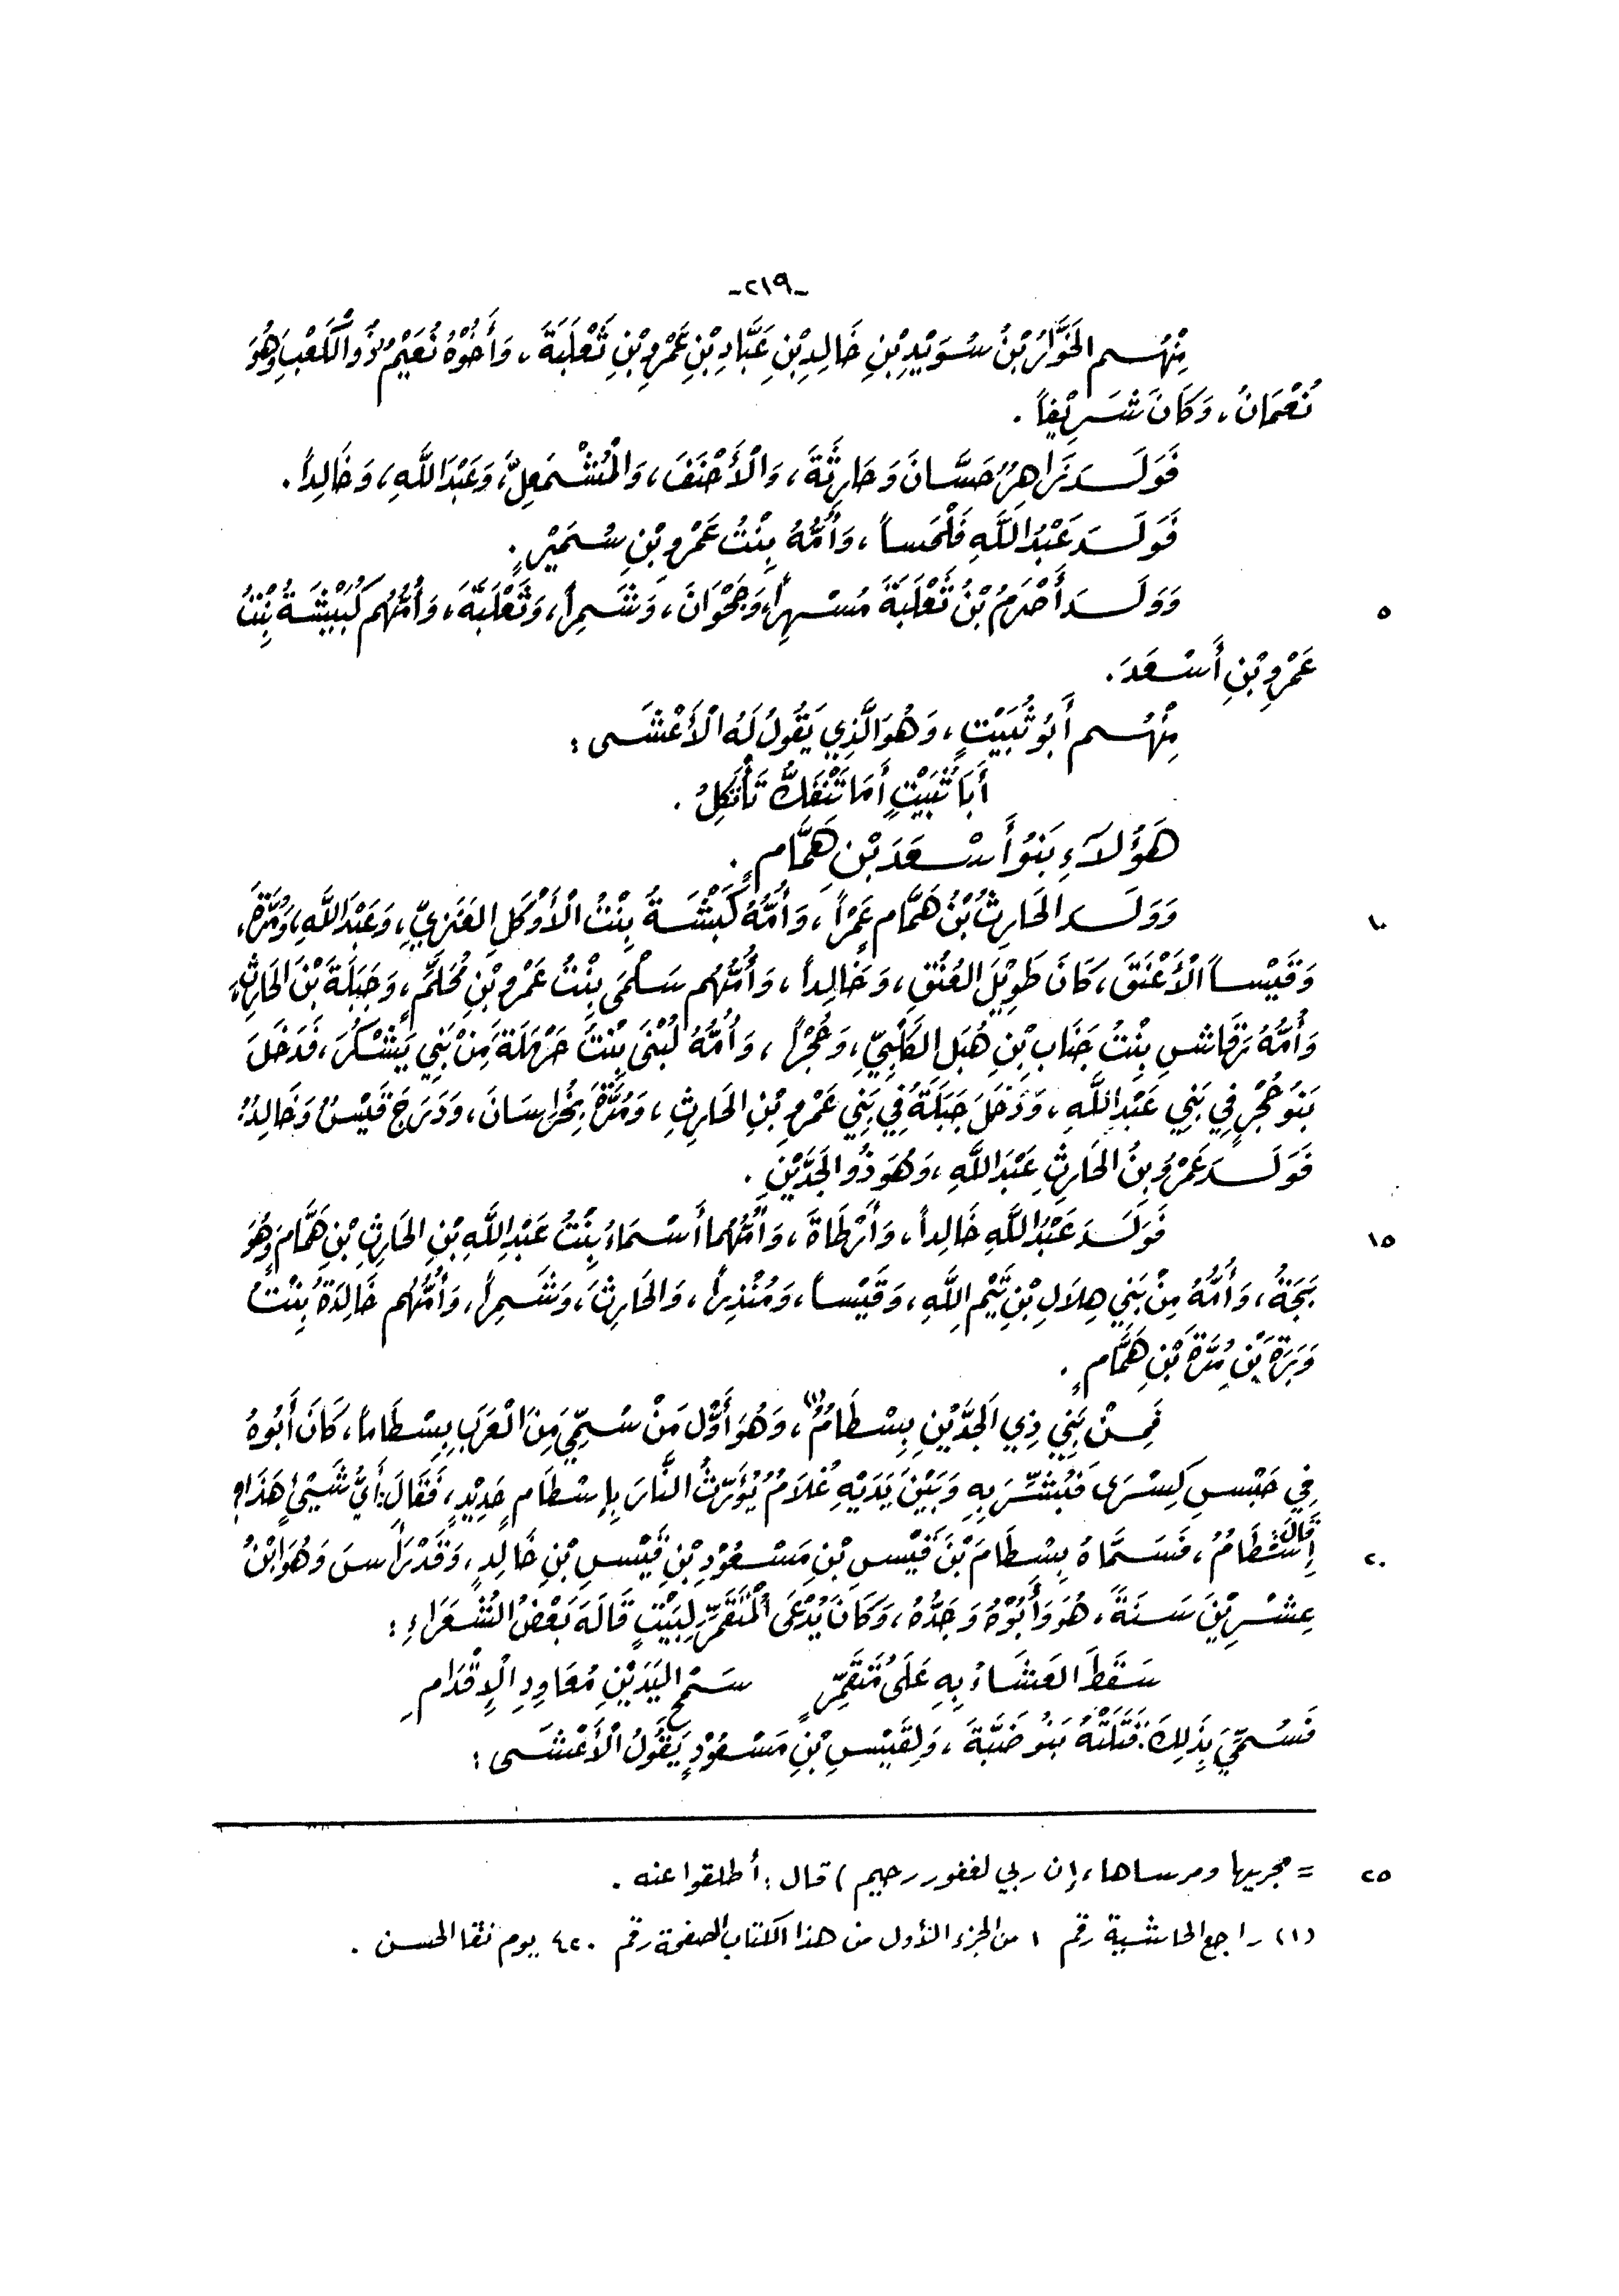 -٢١٩-
مِنْهُم الخَوَّارُ بْنُ سُوَيْدِ بْنِ خَالِدِ بْنِ عَبَّادِ بْنِ عَمْرِو بْنِ ثَعْلَبَةَ، وَأَخُوْهُ نُعَيْمُ ذُو الْكَعْبِ وَهُوَ
نُعْمَانُ، وَكَانَ شَرِيْفاً.
فَوَلَدَ زَاهِرٌ حَسَّانَ وَحَارِثَةَ، وَالْأَحْنَفَ، وَالْمُشْمَعِلَّ، وَعَبْدَ اللَّهِ، وَخَالِداً.
فَوَلَدَ عَبْدُ اللَّهِ فَلْحَساً، وَأُمُّهُ بِنْتُ عَمْرِو بْنِ سُمَيْرٍ.
٥ وَوَلَدَ أَخْرَمُ بْنُ ثَعْلَبَةَ مُسْهِراً، وَجَحْوَانَ، وَشَمِراً، وَثَعْلَبَةَ، وَأُمُّهُم كُبَيْشَةُ بِنْتُ
عَمْرِو بْنِ أَسْعَدَ.
مِنْهُم أَبُو ثُبَيْتٍ، وَهُوَ الَّذِي يَقُولُ لَهُ الْأَعْشَى:
أَبَا ثُبَيْتٍ أَمَا تَنْفَكُّ تَأْتَكِلُ.
هَؤُلَاءِ بَنُو أَسْعَدَ بْنِ هَمَّامٍ.
١٠ وَوَلَدَ الحَارِثُ بْنُ هَمَّامٍ عَمْراً، وَأُمُّهُ كَبْشَةُ بِنْتُ الْأَوْكَلِ العَنَزِيِّ، وَعَبْدَ اللَّهِ، وَمُرَّةَ،
وَقَيْساً الْأَعْنَقَ، كَانَ طَوِيْلَ العُنُقِ، وَخَالِداً، وَأُمُّهُم سَلْمَى بِنْتُ عَمْرِو بْنِ مُحَلِّمٍ، وَجَبَلَةَ بْنَ الحَارِثِ،
وَأُمُّهُ رَقَاشِ بِنْتُ جَنَابِ بْنِ هُبَلِ الكَلْبِيِّ، وَحُجْراً، وَأُمُّهُ لُبْنَى بِنْتُ حَرْمَلَةَ مِنْ بَنِي يَشْكُرَ، فَدَخَلَ
بَنُو حُجْرٍ فِي بَنِي عَبْدِ اللَّهِ، وَدَخَلَ جَبَلَةُ فِي بَنِي عَمْرِو بْنِ الحَارِثِ، وَمُرَّةُ بِخُرَاسَانَ، وَدَرَجَ قَيْسٌ وَخَالِدٌ؛
فَوَلَدَ عَمْرُو بنُ الحَارِثِ عَبْدَ اللَّهِ، وَهُوَ ذُو الجَدَّيْنِ.
١٥ فَوَلَدَ عَبْدُ اللَّهِ خَالِداً، وَأَرْطَاةَ، وَأُمُّهُمَا أَسْمَاءُ بِنْتُ عَبْدِ اللَّهِ بْنِ الحَارِثِ بْنِ هَمَّامٍ وَهُوَ
بَجَةُ، وَأُمُّهُ مِنْ بَنِي هِلَالِ بْنِ تَيْمِ اللَّهِ، وَقَيْساً، وَمُنْذِراً، وَالحَارِثَ، وَشَمِراً، وَأُمُّهُم خَالِدَةُ بِنْتُ
وَبَرَةَ بْنِ مُرَّةَ بْنِ هَمَّامٍ.
فَمِنْ بَنِي ذِي الجَدَّيْنِ بِسْطَامُ(١)، وَهُوَ أَوَّلُ مَنْ سُمِّيَ مِنَ الْعَرَبِ بِسْطَاماً، كَانَ أَبُوهُ
فِي حَبْسِ كِسْرَى فَبُشِّرَ بِهِ وَبَيْنَ يَدَيْهِ غُلَامٌ يُؤَرِّثُ النَّارَ بِإِسْطَامِ حَدِيْدٍ، فَقَالَ: أَيُّ شَيْئٍ هَذَا؟
٢٠ قَالَ: إِسْطَامُ، فَسَمَّاهُ بِسْطَامَ بْنَ قَيْسِ بْنِ مَسْعُوْدِ بْنِ قَيْسِ بْنِ خَالِدٍ، وَقَدْ رَأَسَ وَهُوَ ابْنُ
عِشْرِيْنَ سَنَةً، هُوَ وَأَبُوْهُ وَجَدُّهُ، وَكَانَ يُدْعَى الْمُتَقَمِّرَ لِبَيْتٍ قَالَهُ بَعْضُ الشُّعَرَاءِ:
سَقَطَ العَشَاءُ بِهِ عَلَى مُتَقَمِّرٍ سَمْحِ اليَدَيْنِ مُعَاوِدِ الْإِقْدَامِ
فَسُمِّيَ بِذَلِكَ. قَتَلَتْهُ بَنُو ضَبَّةَ، وَلِقَيْسِ بْنِ مَسْعُوْدٍ يَقُولُ الْأَعْشَى:
٢٥ = مجريها ومرساها، إن ربي لغفور رحيم) قال: أطلقوا عنه.
(١) راجع الحاشية رقم ١ من الجزء الأول من هذا الكتاب الصفحة رقم ٤٢٠ يوم نقا الحسن.